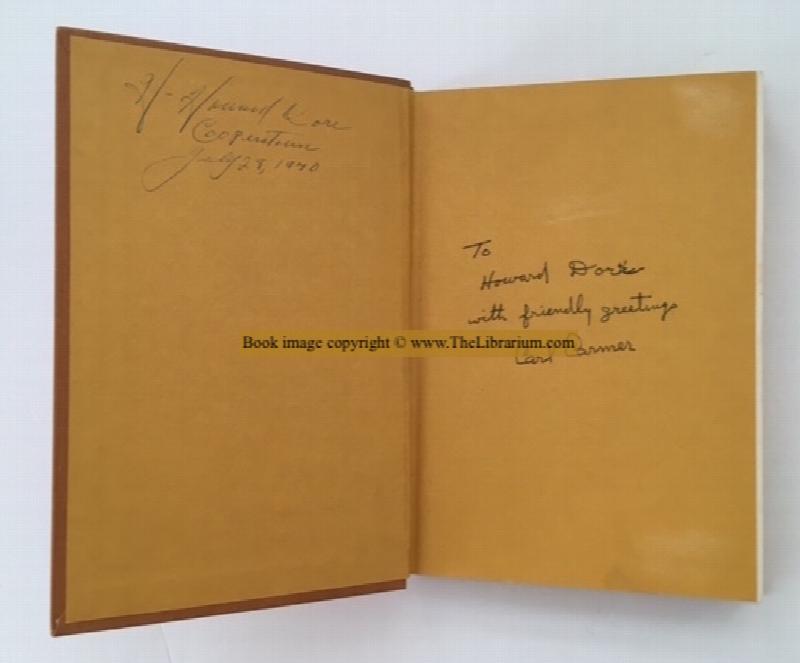 H. Howard Dore
Cooperstown
July 28, 1940
To
Howard Dore
with friendly greetings
Carl Carmer
Book image copyright © www.TheLibrarium.com